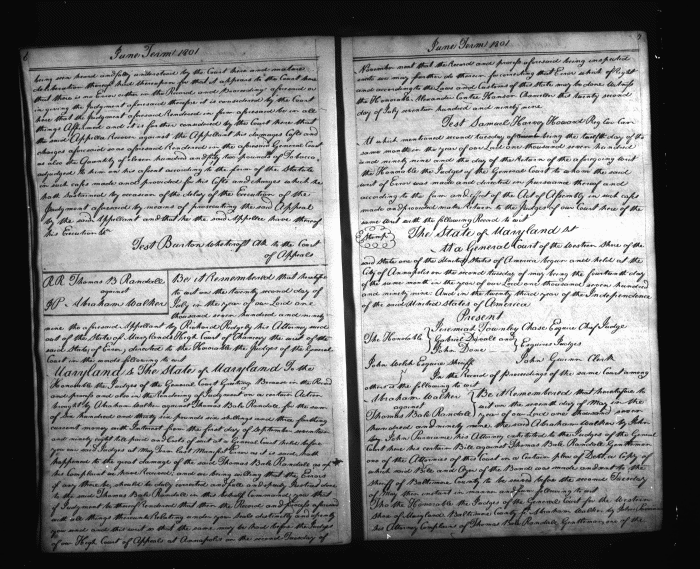 June Term 1801
being seen heard and fully understood by the Court here and mature
deliberation thereupon had therefore for that it appears to the Court here
that there is no Error in the Record and Proceedings aforesaid or
in giving the Judgment aforesaid therefore it is considered by the Court
here that the Judgment aforesaid Rendered in form aforesaid be in all
things Affirmed and it is further considered by the Court here that
the said Appellee recover against the Appellant his damages Costs and
charges aforesaid in form aforesaid Rendered in the aforesaid General Court
as also the Quantity of eleven hundred and fifty two pounds of Tobacco
adjudged to him on his assent according to the form of the Statute
in such case made and provided for his Costs and charges which he
hath sustained by occasion of the delay of the Execution of the
Judgment aforesaid by means of prosecuting the said Appeal
by the said Appellant and that he the said Appellee have thereof
his Execution &c
Test Burton Whetcroft Clk the Court
of Appeals
R.R. Thomas B Randell
against
Abraham Walker
Be it Remembered that heretofore
to wit on the twenty second day of
July in the year of our Lord one
thousand seven hundred and ninety
nine the aforesaid Appellant by Richard Ridgely his Attorney sued
out of the State of Maryland High Court of Chancery the writ of the
said State of Error directed to the Honorable the Judges of the General
Court in the manner following to wit
Maryland Ss The State of Maryland To the
Honorable the Judges of the General Court Greeting Because in the Record
and process and also in the Rendering of Judgment on a certain Action
brought by Abraham Walker against Thomas Bale Randell for the sum
of Six hundred and thirty six pounds six shillings and three farthings
current money with Interest from the first day of September seventeen
and ninety eight till paid and Costs of suit at a General Court holden before
you our said Judges at May Term last Manifest Error as it is said hath
happened to the great damage of the said Thomas Bale Randell as of
his complaint we have Received and we being willing that the Errors
if any there be should be duly corrected and full and speedy Justice done
to the said Thomas Bale Randell in this behalf Command you that
if Judgment be thereof Rendered that then the Record and process aforesaid
with all things thereunto Relating under your Seals distinctly and openly
you send and this writ so that the same may be had before the Judges
of our High Court of Appeals at Annapolis on the second Tuesday of
June Term 1801
November next that the Record and process aforesaid being inspected
we may further do therein for correcting that Error which of Right
and according to the Laws and Customs of this State may be done Witness
the Honorable Alexander Contee Hanson Chancellor this twenty second
day of July seventeen hundred and ninety nine
Test Samuel Harvey Howard Reg Cur Can
At which mentioned second tuesday of being the twelfth day of the
same month in the year of our Lord one thousand seven hundred
and ninety nine and the day of the return of the aforegoing writ
the Honorable the Judges of the General Court to whom the said
writ of Error was made and directed in pursuance thereof and
according to the form and effect of the Act of Assembly in such case
made and provided make return to the Judges of our Court here of the
same writ with the following Record to wit
The State of Maryland Sst
At a General Court of the Western Shore of the
said State one of the United States of America begun and held at the
City of Annapolis on the second tuesday of may being the fourteenth day
of the same month in the year of our Lord one thousand seven hundred
and ninety nine And in the twenty third year of the Independence
of the said United States of America
Present
The Honorable
Jeremiah Townley Chase Esquire Chief Judge
Gabriel Duvall and
John Done
Esquires Judges
John Welch Esquire Sheriff
John Gwinn Clerk
In the Record of proceedings of the same Court among
others is the following to wit
Abraham Walker
against
Thomas Bale Randell
Be it Remembered that heretofore to
wit on the second tuesday of May in the
year of our Lord one thousand seven
hundred and ninety nine the said Abraham Walker by John
his Attorney exhibited to the Judges of the General
Court here his certain Bill against Thomas Bale Randell Gentleman
one of the Attornies of this Court in a Certain plea of Debt, a Copy of
which said Bill and Copy of the Bond was made and sent to the
Sheriff of Baltimore County to be served before the second Tuesday
of May then instant in manner and form following to wit
To the Honorable the Judges of the General Court for the Western
Shore of Maryland Baltimore County Ss Abraham Walker by John
his Attorney Complains of Thomas Bale Randell Gentleman one of the